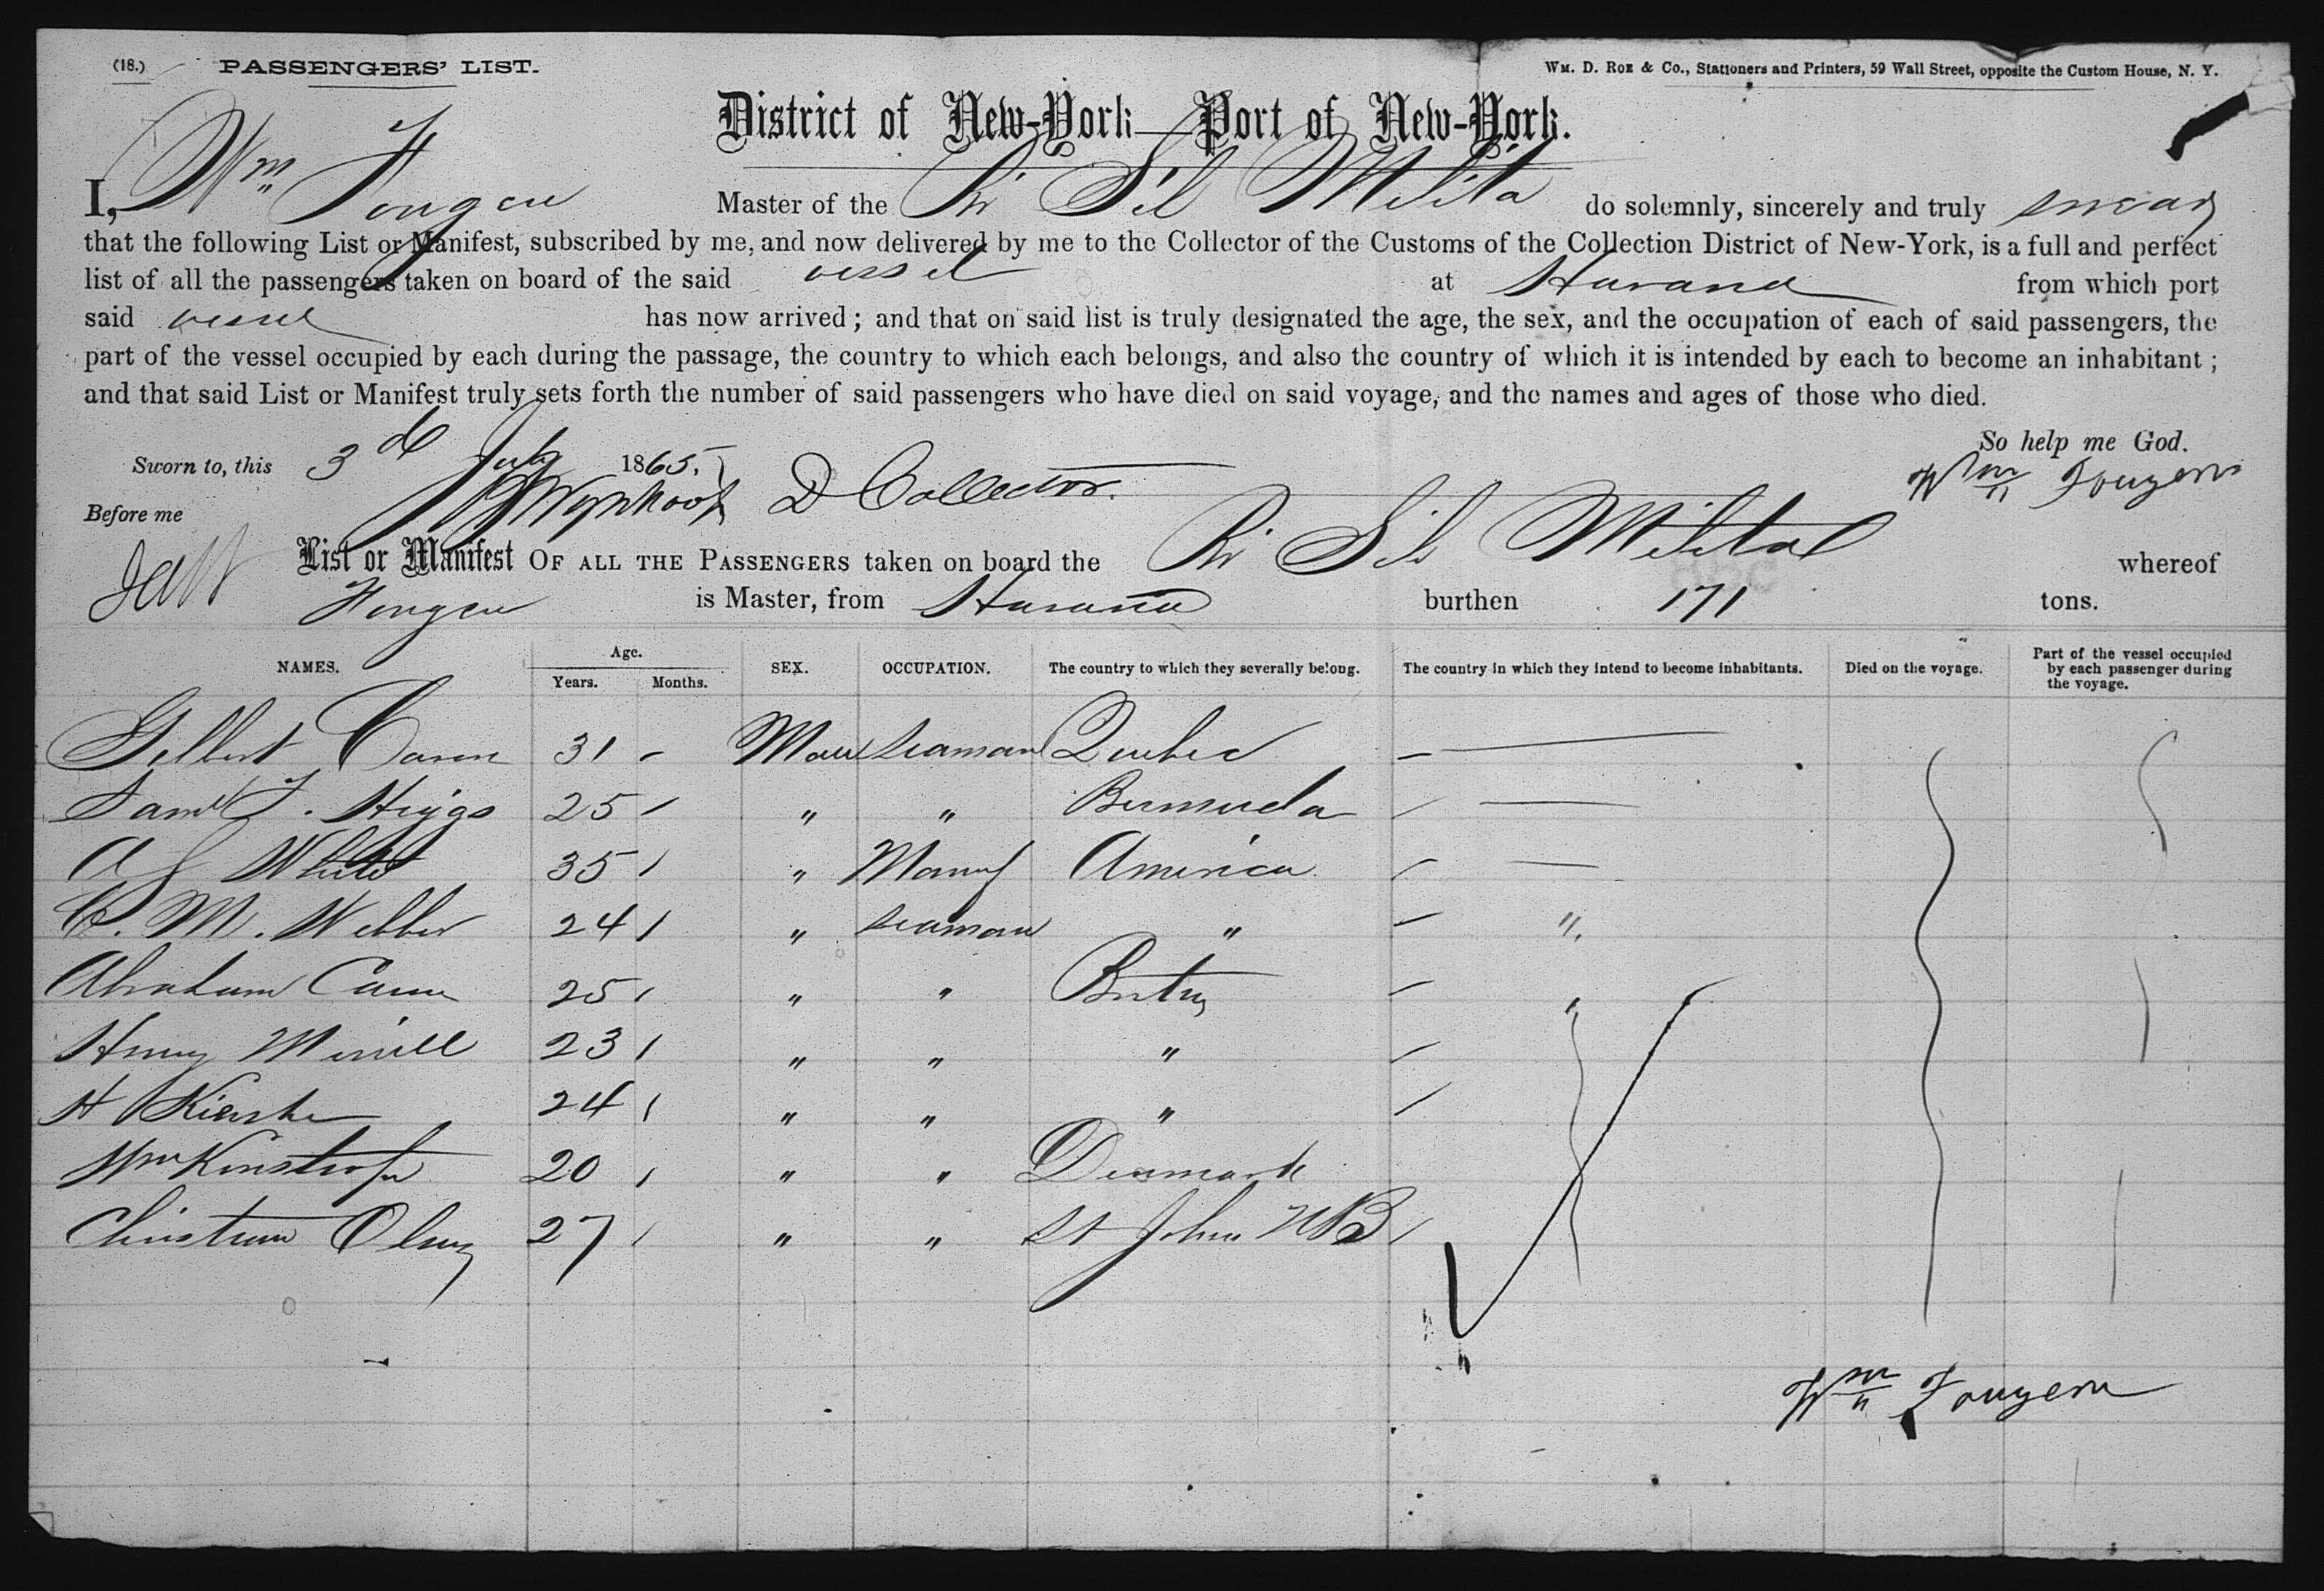 (18.) PASSENGERS' LIST. WM. D. ROE & CO., Stationers and Printers, 59 Wall Street, opposite the Custom House, N. Y.
District of New-York—Port of New-York.
I, Wm Master of the Br Melita do solemnly, sincerely and truly swear
that the following List or Manifest, subscribed by me, and now delivered by me to the Collector of the Customs of the Collection District of New-York, is a full and perfect
list of all the passengers taken on board of the said vessel at Havana from which port
said vessel has now arrived; and that on said list is truly designated the age, the sex, and the occupation of each of said passengers, the
part of the vessel occupied by each during the passage, the country to which each belongs, and also the country of which it is intended by each to become an inhabitant;
and that said List or Manifest truly sets forth the number of said passengers who have died on said voyage, and the names and ages of those who died.
So help me God.
Sworn to, this 3d July 1865. Wm
Before me D Collector.
List or Manifest OF ALL THE PASSENGERS taken on board the Br Melita whereof
is Master, from Havana burthen 171 tons.
NAMES. Age. Years. Months. SEX. OCCUPATION. The country to which they severally belong. The country in which they intend to become inhabitants. Died on the voyage. Part of the vessel occupied by each passenger during the voyage.
Gilbert 31 - Male Seaman Quebec —
Saml T. Higgs 25 " " Bermuda —
A White 35 " America —
C. M. Webber 24 " Seaman " "
Abraham 25 " " "
Henry 23 " " "
H 24 " " "
Wm 20 " " Denmark
Christian 27 " " St John NB
Wm